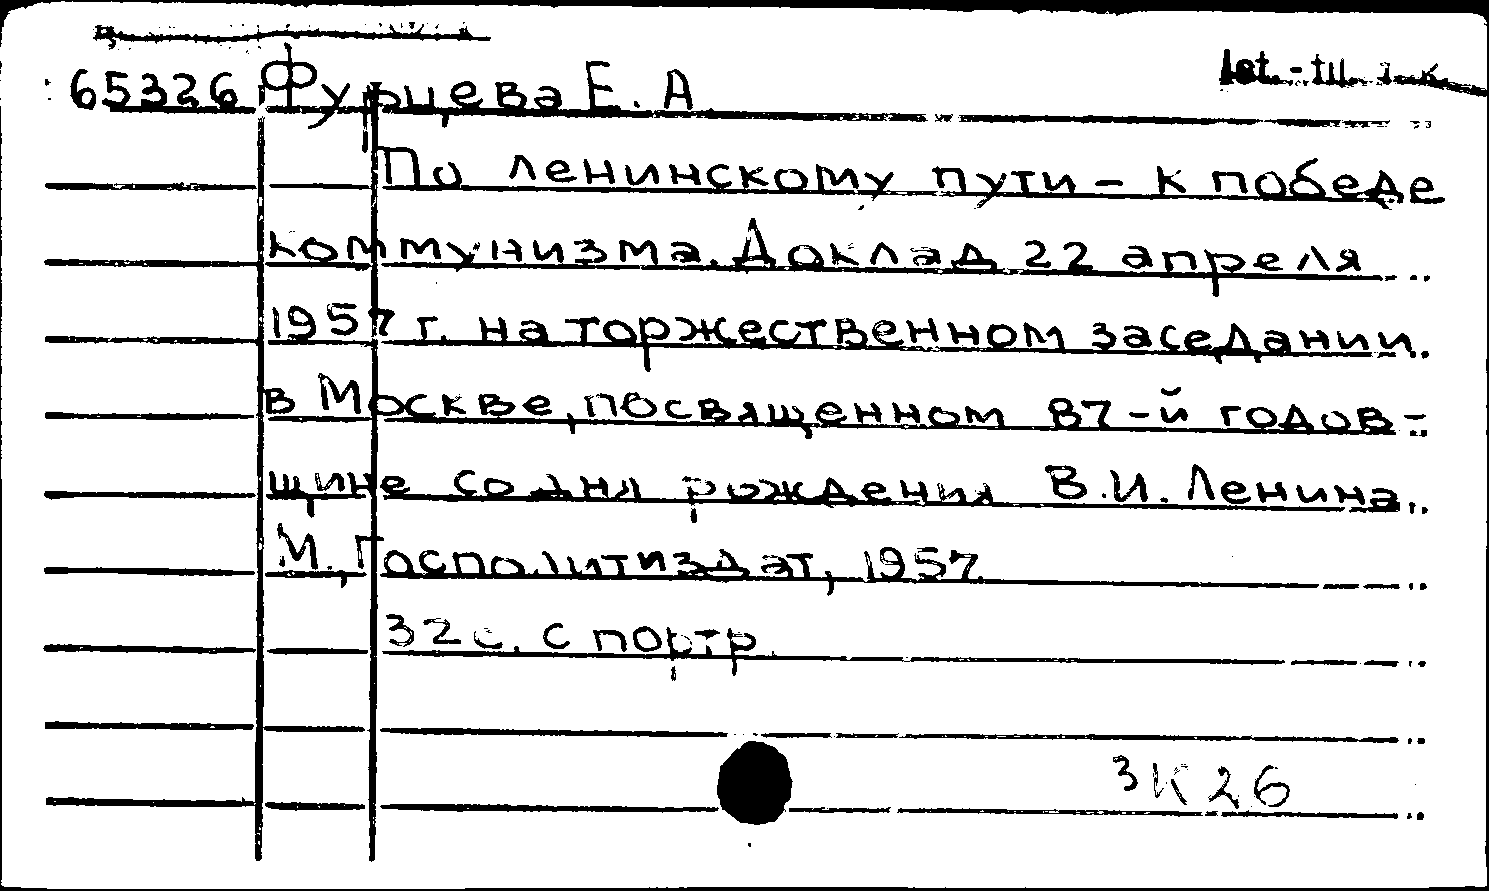 65326 Фурцева Е. А.
По ленинскому пути – к победе
коммунизма. Доклад 22 апреля
1957 г. на торжественном заседании
в Москве, посвященном 87-й годов-
щине со дня рождения В.И. Ленина.
М., Госполитиздат, 1957.
32 с. с портр.
3К26